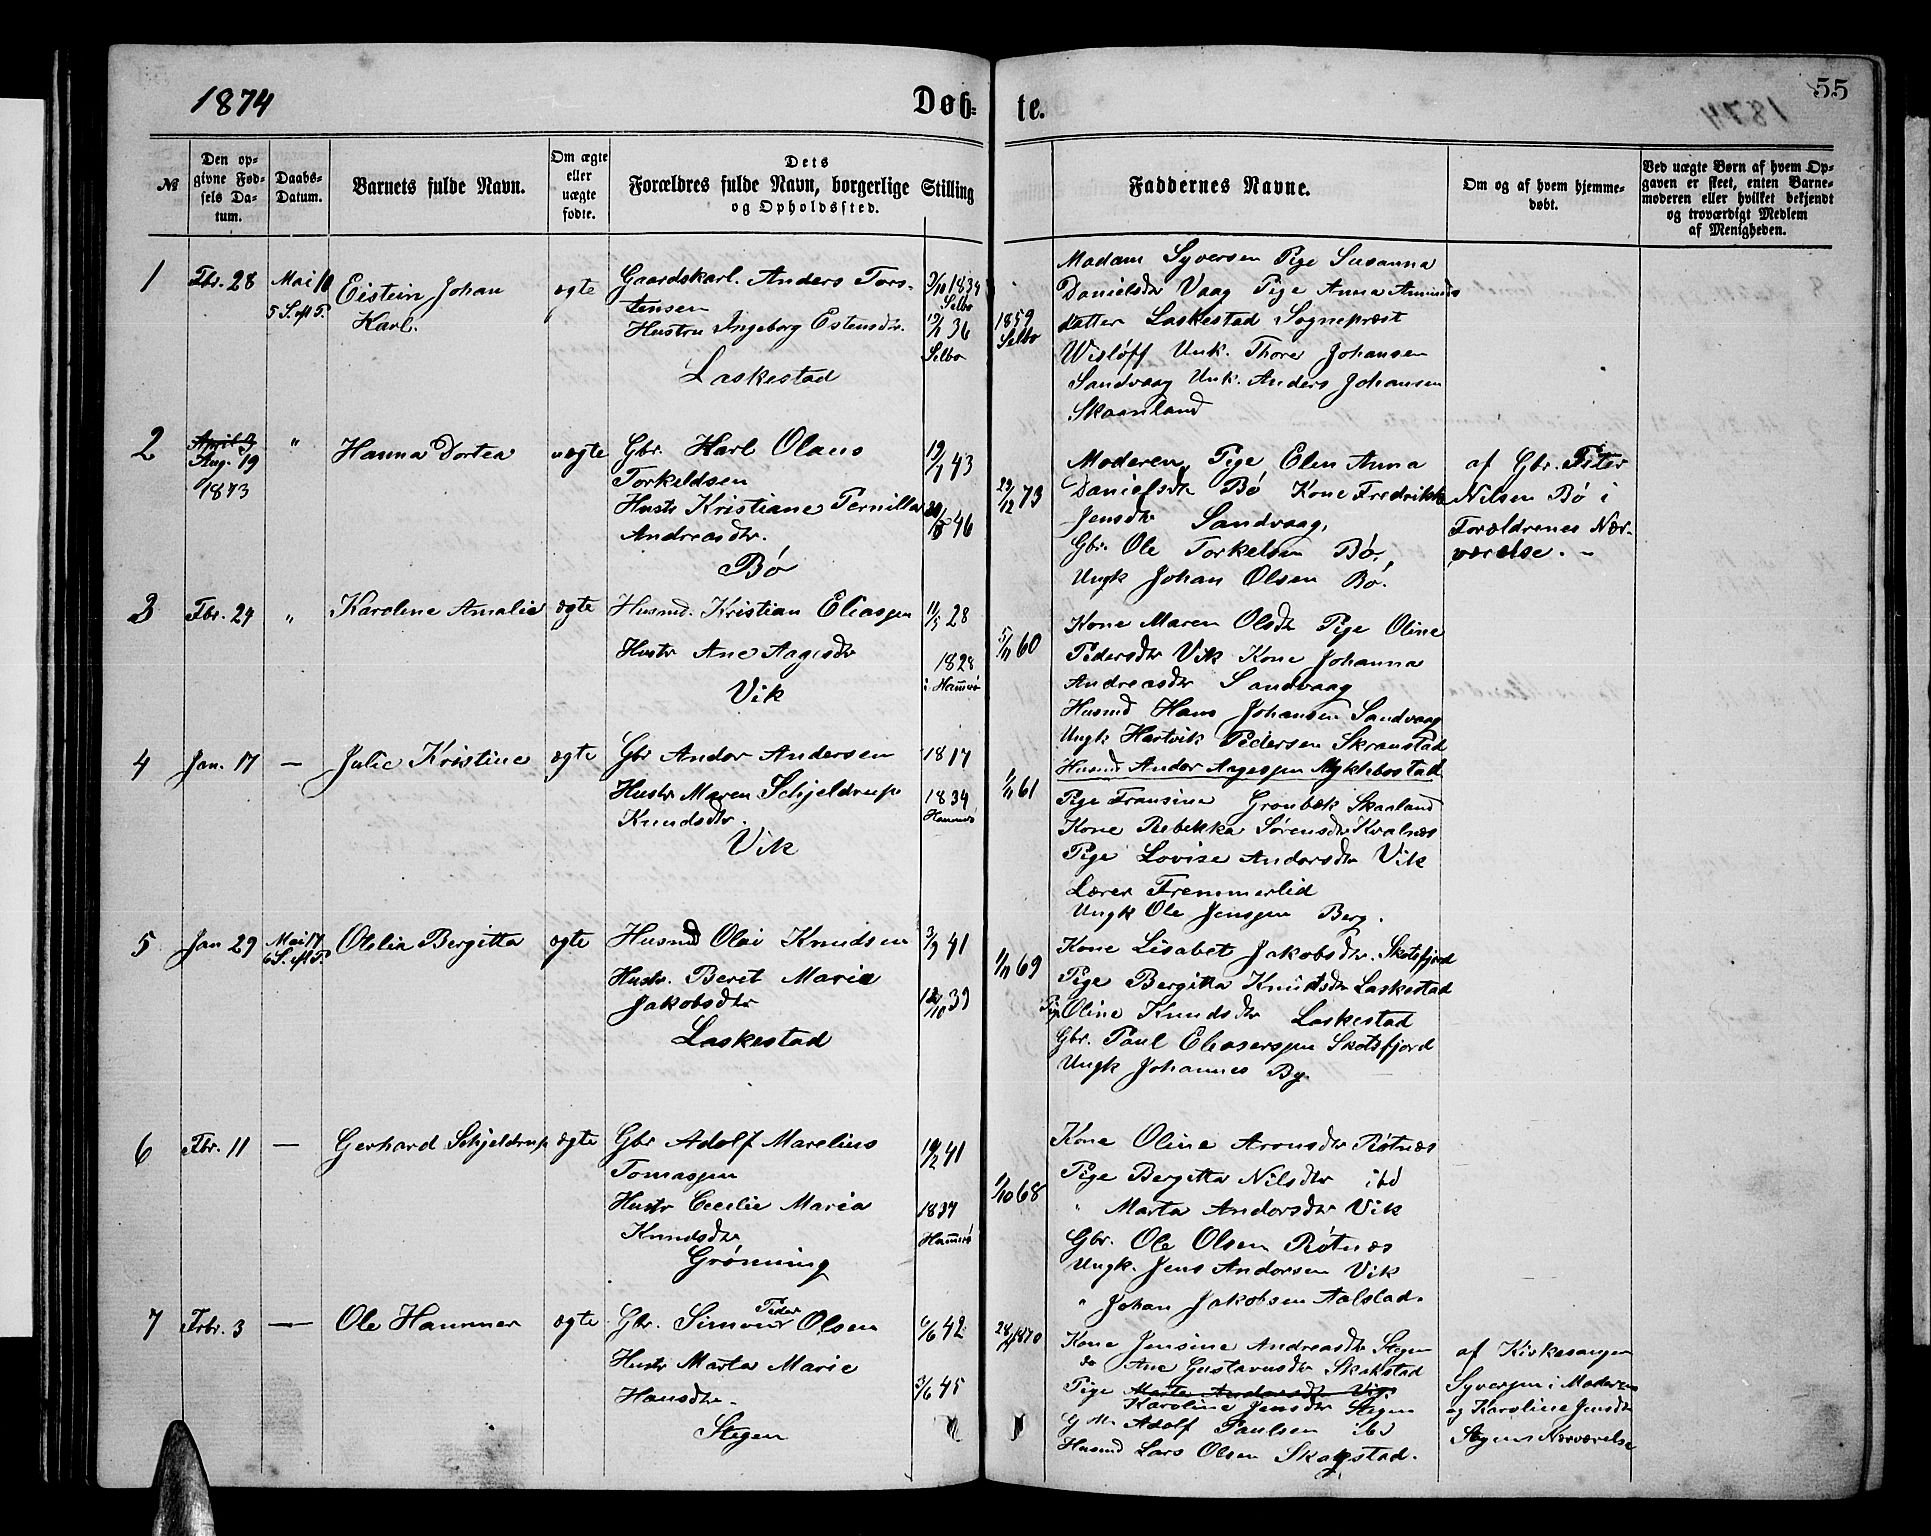 1874
Døb-
te.
55
№
Den op-
givne Fød-
sels Da-
tum.
Daabs-
Datum.
Barnets fulde Navn.
Om ægte
eller
uægte
fødte.
Dets
Forældres fulde Navn, borgerlige Stilling
og Opholdssted.
Faddernes Navne.
Om og af hvem hjemme-
døbt.
Ved uægte Børn af hvem Op-
gaven er skeet, enten Barne-
moderen eller hvilket bekjendt
og troværdigt Medlem
af Menigheden.
1
Fbr. 28
Mai 10
5 S. eft P.
Eistein Johan
Karl.
ægte
Gaardskarl. Anders Tors-
tensen
Hustru Ingeborg Estensdr.
Laskestad
3/10 1834
Selbo
36
Selbo
1859
Selbo
Madam Syversen Pige Susanna
Danielsdr Vaag Pige Anna Amunds
datter Laskestad Sognepræst
Wisløff Unk. Thore Johansen
Sandvaag Unk. Anders Johansen
Skaanland
2
April 3
Aug. 19
1873
"
Hanna Dortea
uægte
Gbr. Karl Olaus
Torkeldsen
Hustr Kristiane Pernilla
Andreasdtr.
Bø
19/1 43
46
29/12 73
Moderen, Pige Elen Anna
Danielsdtr Bø Kone Fredrikke
Jensdtr Sandvaag,
Gbr. Ole Torkelsen Bø,
Ungk Johan Olsen Bø.
af Gbr. Peter
Nilsen Bø i
Forældrenes Nær-
værelse. -
3
Fbr. 24
"
Karoline Amalie
ægte
Husmd. Kristian Eliassen
Hustr Ane Aagesdtr
Vik
11/5 28
1828
i Hamarø
5/11 60
Kone Maren Olsdtr Pige Oline
Pedersdtr Vik Kone Johanna
Andreasdtr Sandvaag
Husmd Hans Johansen Sandvaag
Ungk Hartvik Pedersen Skranstad
Husmd Andor Aagessen Myklebostad
4
Jan. 17
—
Julie Kristine
ægte
Gbr Andor Andersen
Hustr Maren Schjeldrup
Knudsdtr.
Vik
1817
1834
Hammerø
1/11 61
Pige Fransina Grønbæk Skaaland
Kone Rebekka Sørensdtr Kvalnæs
Pige Lovise Andorsdtr Vik
Lærer Fremmerlid
Ungk Ole Jenssen Berg.
5
Jan 29
Mai 17
6 S. eft P.
Otelia Bergitta
ægte
Husmd Olai Knudsen
Hustr. Beret Maria
Jakobsdtr
Laskestad
3/9 41
12/10 39
1/11 69
Kone Lisabet Jakobsdtr. Skotsfjord
Pige Bergitta Knudsdtr Laskestad
Pige Oline Knudsdtr Laskestad
Gbr. Paul Eliasersen Skotsfjord
Ungk Johannes By
6
Fbr. 11
—
Gerhard Schjeldrup
ægte
Gbr Adolf Marelius
Tomassen
Hustr Cecilie Maria
Knudsdtr
Grønning
19/2 41
1834
Hamarø
1/10 68
Kone Oline Aronsdtr Røtnæs
Pige Bergitta Nilsdtr ibd
" Marta Andorsdtr Vik
Gbr. Ole Olsen Røtnæs
Ungk. Jens Andorsen Vik
" Johan Jakobsen Aalstad.
7
Febr. 3
—
Ole Hammer
ægte
Gbr. Simon Peder Olsen
Hustr Marta Marie
Hansdtr.
Stegen
6/6 42
3/6 45
1870
Kone Jensine Andreasdtr Stegen
do Ane Gustavusdtr Skakstad
Pige Marta Andorsdtr Vik
Karoline Jensdtr Stegen
G M. Adolf Paulsen ibd
Husmd Lars Olsen Skagstad.
af Kirkesanger
Syversen i Moderens
og Karoline Jensdtr
Stegens Nærværelse